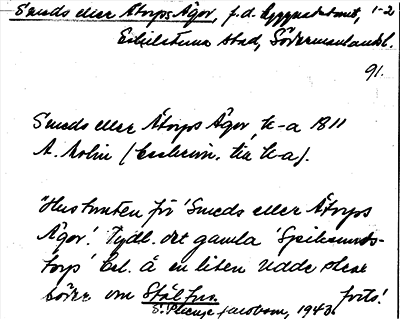 Smeds eller Åtorps Ägor, f.d. Byggnadstomt, 1-2
Eskilstuna stad, Södermanlands l.
91.
Smeds eller Åtorps Ägor, k-a 1811
A. Molin (beskrivn. till k-a).
"Hustomten för 'Smeds eller Åtorps
Ägor'. Tydl. det gamla
torp' bel. å en liten udde
söder om Stålfors. forts!
S. Jacobsson, 1943.